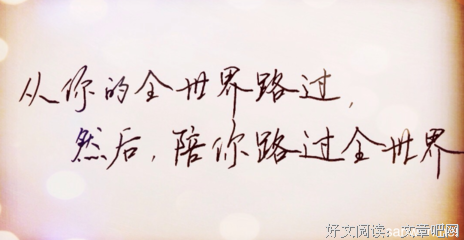 从你的全世界路过,
然后,陪你路过全世界
好文阅读:文章吧网